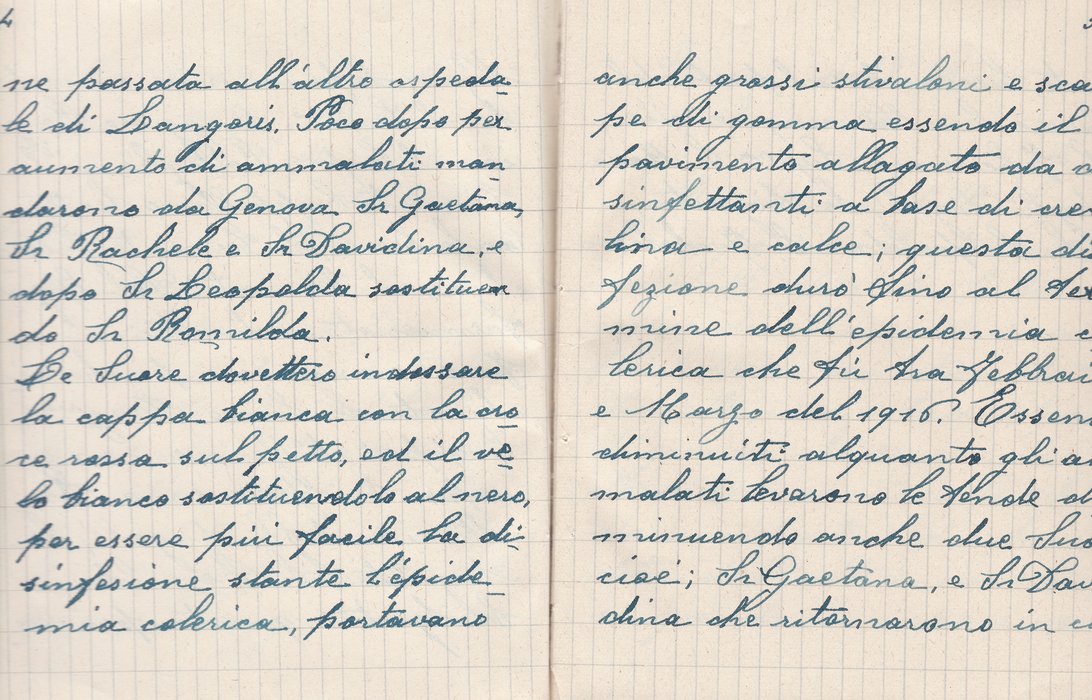 4
ne passata all'altro ospeda_
le di Langoris. Poco dopo per
aumento di ammalati man_
darono da Genova Sr Gaetana,
Sr Rachele e Sr Davidina, e
dopo Sr Leopolda sostituen
do Sr Romilda.
Le Suore dovettero indossare
la cappa bianca con la cro_
ce rossa sul petto, ed il ve_
lo bianco sostituendolo al nero,
per essere più facile la di_
sinfesione stante l'epide_
mia colerica, portavano
anche grossi stivaloni e sca
pe di gomma essendo il
pavimento allagato da
sinfettanti a base di creo
lina e calce; questa
fezione durò fino al ter
mine dell'epidemia co
lerica che fù tra Febbrai
e Marzo del 1916. Essen
diminuiti alquanto gli am
malati levarono le tende
minuendo anche due Suo
cioé; Sr Gaetana, e Sr Dav
dina che ritornarono in